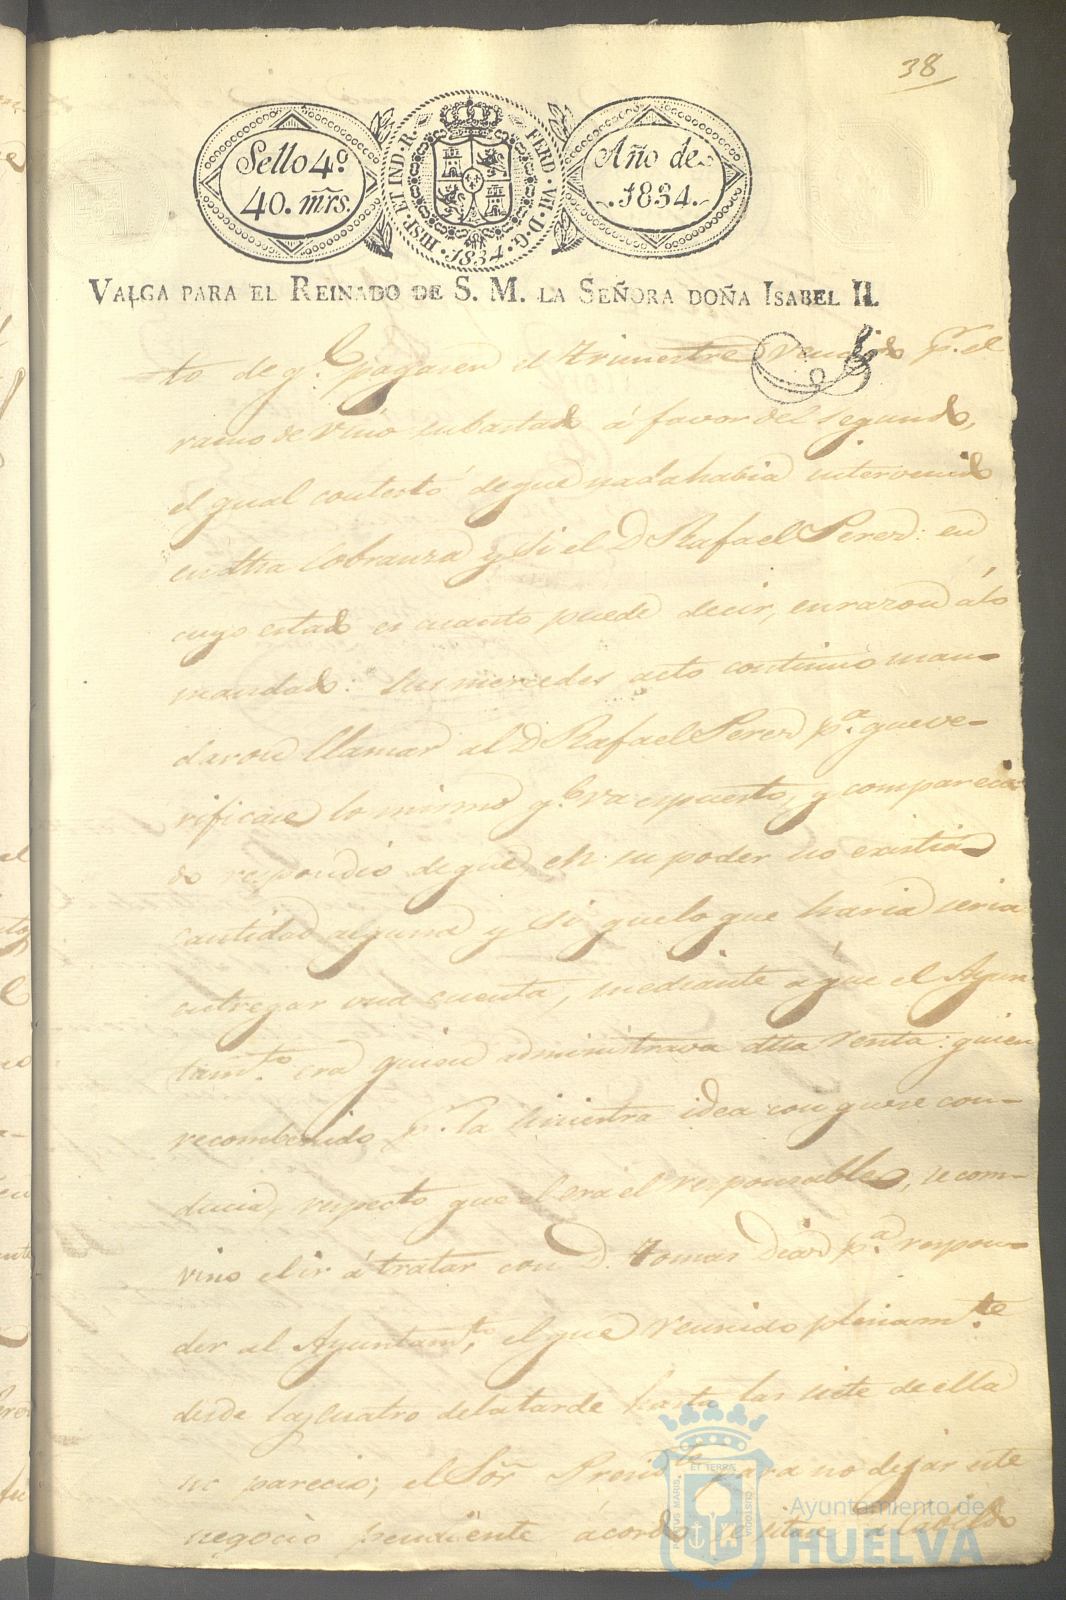 38
Sello 4º.
40. mrs.
HISP. ET IND. R. FERD. VII. D. G.
1834
Año de
1834.
VALGA PARA EL REINADO DE S. M. LA SEÑORA DOÑA ISABEL II.
to de q.e pagasen el trimestre vencido p.r el
ramo de vino subastado á favor del segundo,
el qual contestó de que nada habia intervenido
en dha cobranza y si el D Rafael Perez: en
cuyo estado es cuanto puede decir, en razon á lo
mandado: Sus mercedes acto continuo man-
daron llamar al D Rafael Perez p.a que ve-
rificase lo mismo q.e va espuesto, y compareci-
do respondió de que en su poder no existia
cantidad alguna y si que lo que haria seria
entregar una cuenta, mediante á que el Ayun
tam.to era quien administrava dha renta: quien
recombenido p.r la siniestra idea con que se con-
ducia, respecto que el era el responsable, se com-
vino el ir á tratar con D. Tomas Diaz p.a respon-
der al Ayuntam.to, el que reunido plenam.te
desde las cuatro de la tarde hasta las siete de ella
no parecio; el Sor. Presid.te para no dejar este
negocio pendiente acordo se citase a Cabildo
PORTUS MARIS ET TERRAE CUSTODIA
Ayuntamiento de
HUELVA